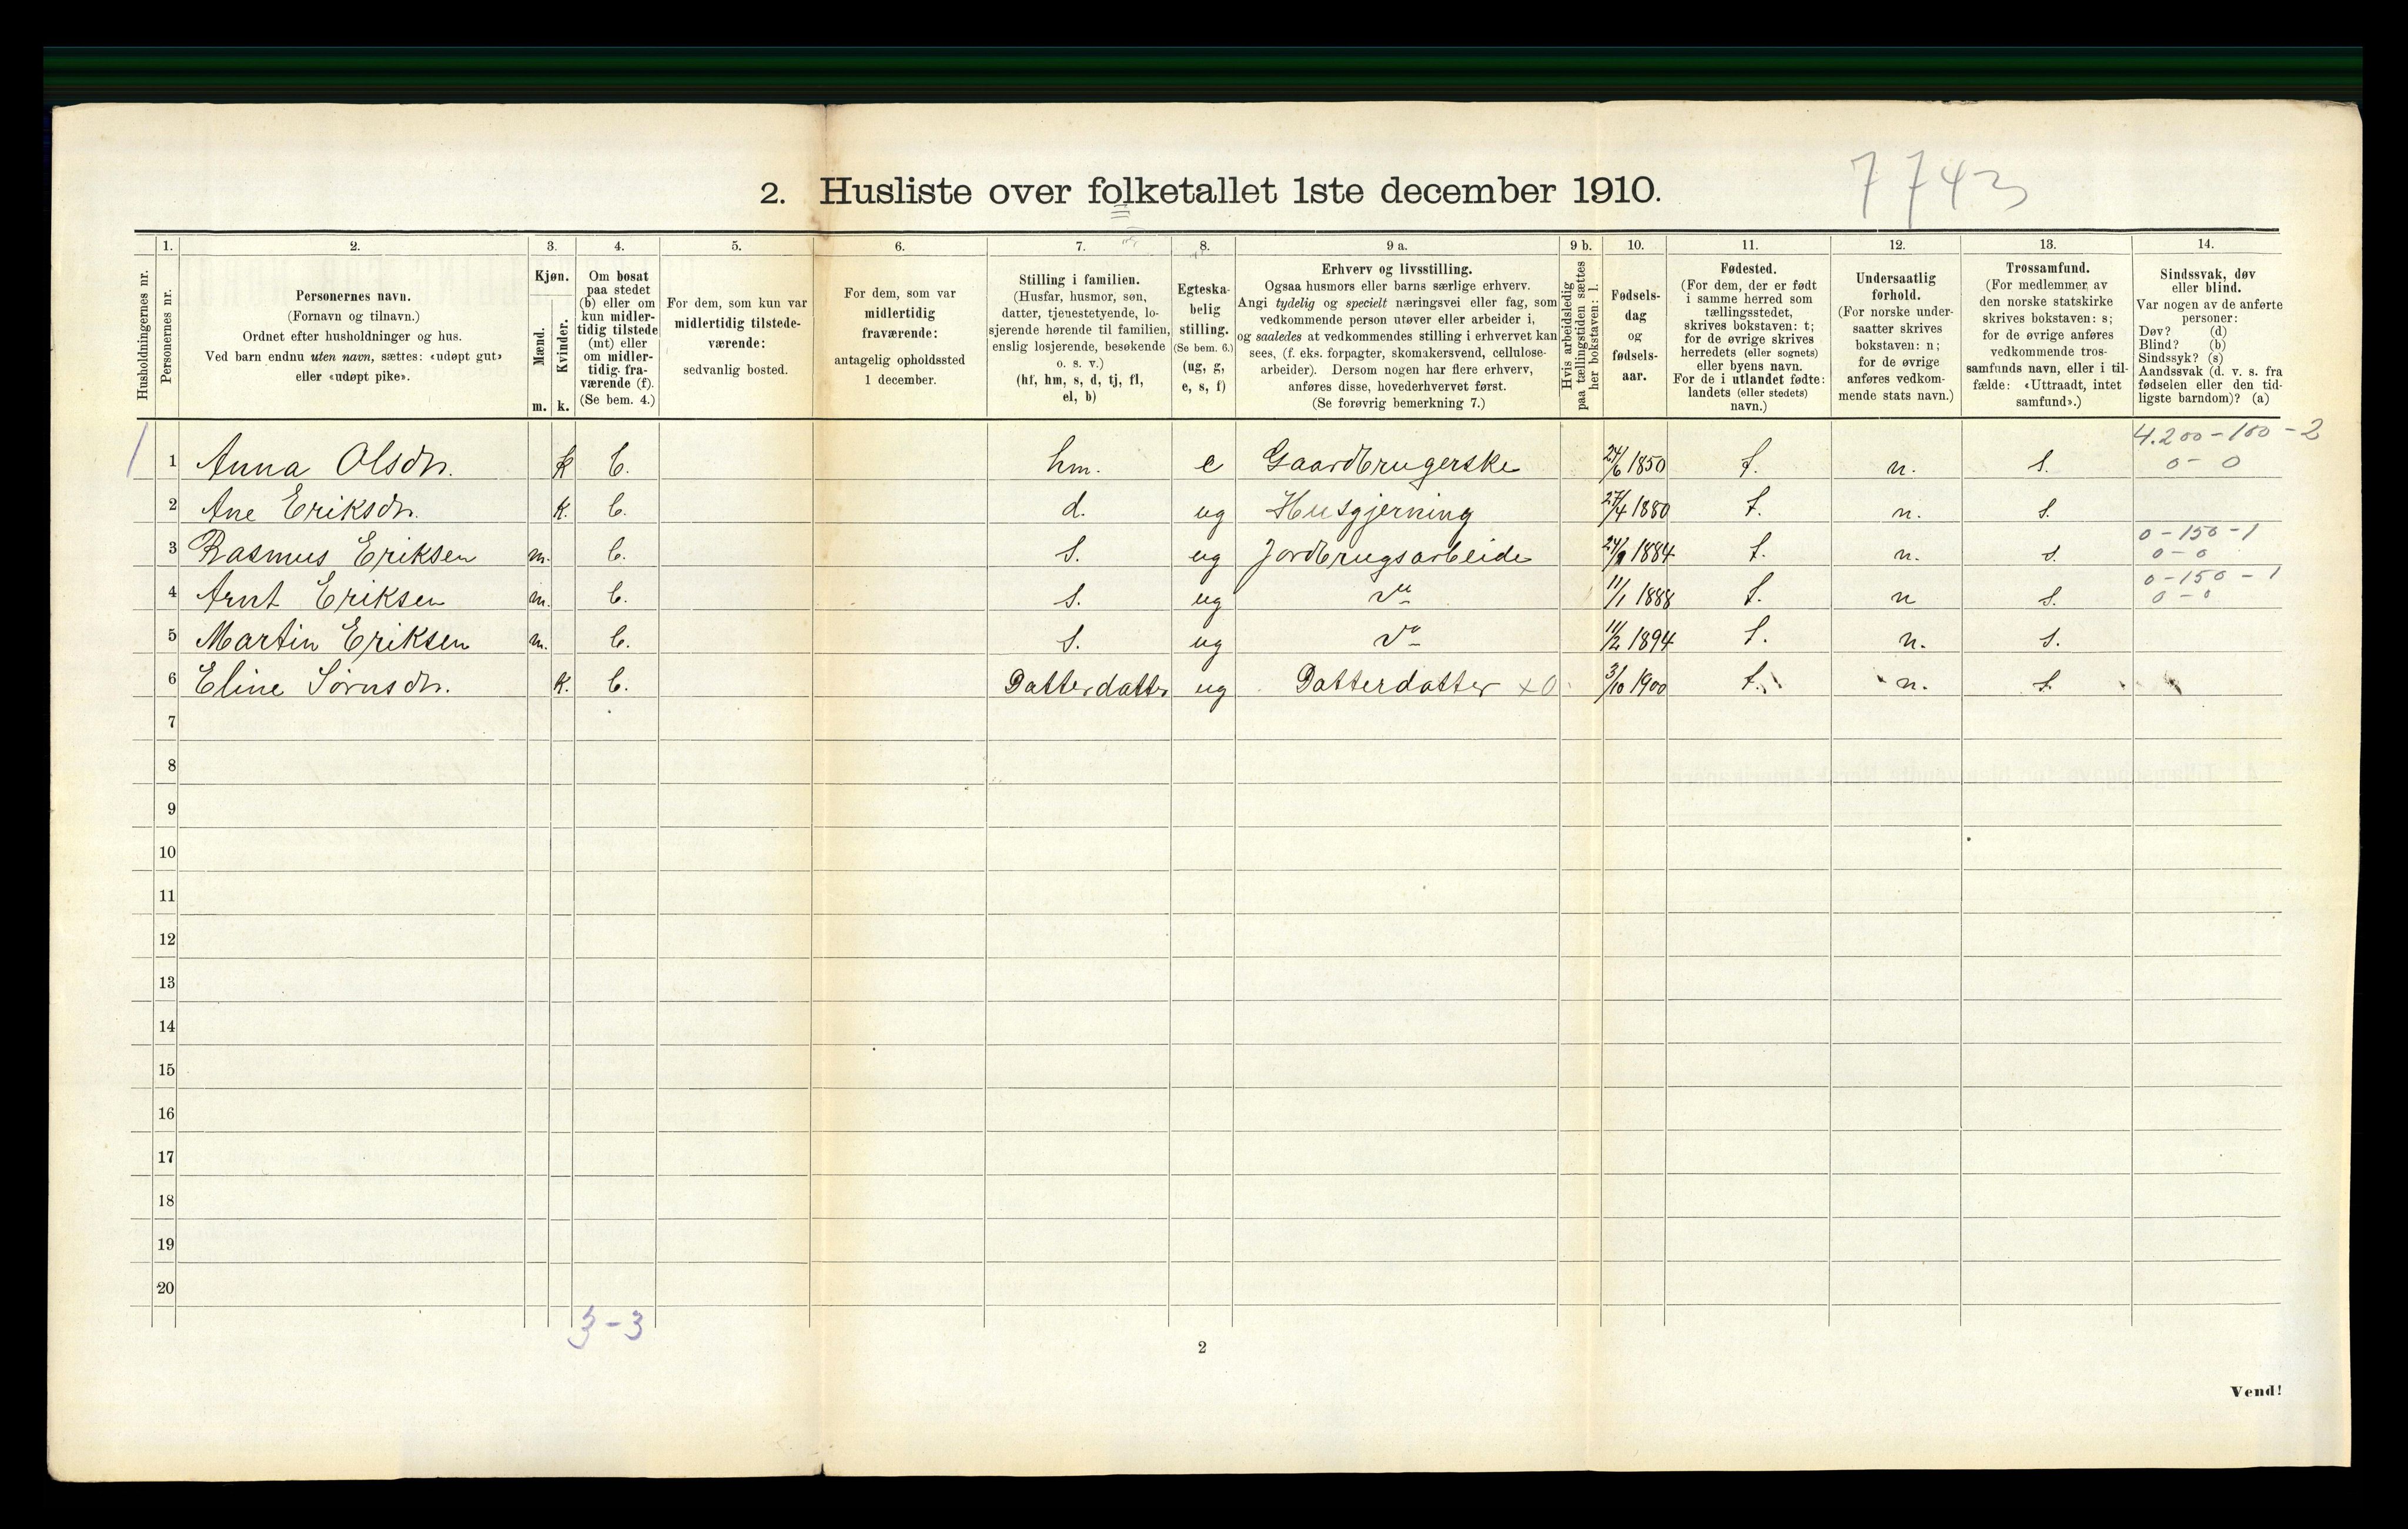 7743
2. Husliste over folketallet 1ste december 1910.
1. 2. 3. 4. 5. 6. 7. 8. 9 a. 9 b. 10. 11. 12. 13. 14.
Husholdningernes nr.
Personernes nr.
Personernes navn.
(Fornavn og tilnavn.)
Ordnet efter husholdninger og hus.
Ved barn endnu uten navn, sættes: «udøpt gut»
eller «udøpt pike».
Kjøn.
Mænd.
Kvinder.
m. k.
Om bosat
paa stedet
(b) eller om
kun midler-
tidig tilstede
(mt) eller
om midler-
tidig fra-
værende (f).
(Se bem. 4.)
For dem, som kun var
midlertidig tilstede-
værende:
sedvanlig bosted.
For dem, som var
midlertidig
fraværende:
antagelig opholdssted
1 december.
Stilling i familien.
(Husfar, husmor, søn,
datter, tjenestetyende, lo-
sjerende hørende til familien,
enslig losjerende, besøkende
o. s. v.)
(hf, hm, s, d, tj, fl,
el, b)
Egteska-
belig
stilling.
(Se bem. 6.)
(ug, g,
e, s, f)
Erhverv og livsstilling.
Ogsaa husmors eller barns særlige erhverv.
Angi tydelig og specielt næringsvei eller fag, som
vedkommende person utøver eller arbeider i,
og saaledes at vedkommendes stilling i erhvervet kan
sees, (f. eks. forpagter, skomakersvend, cellulose-
arbeider). Dersom nogen har flere erhverv,
anføres disse, hovederhvervet først.
(Se forøvrig bemerkning 7.)
Hvis arbeidsledig
paa tællingstiden sættes
her bokstaven: l.
Fødsels-
dag
og
fødsels-
aar.
Fødested.
(For dem, der er født
i samme herred som
tællingsstedet,
skrives bokstaven: t;
for de øvrige skrives
herredets (eller sognets)
eller byens navn.
For de i utlandet fødte:
landets (eller stedets)
navn.)
Undersaatlig
forhold.
(For norske under-
saatter skrives
bokstaven: n;
for de øvrige
anføres vedkom-
mende stats navn.)
Trossamfund.
(For medlemmer av
den norske statskirke
skrives bokstaven: s;
for de øvrige anføres
vedkommende tros-
samfunds navn, eller i til-
fælde: «Uttraadt, intet
samfund».)
Sindssvak, døv
eller blind.
Var nogen av de anførte
personer:
Døv? (d)
Blind? (b)
Sindssyk? (s)
Aandssvak (d. v. s. fra
fødselen eller den tid-
ligste barndom)? (a)
4.200-100-2
1 1 Anna Olsdr. k b. hm. e Gaardbrugerske 24/6 1850 t. n. s. 0-0
2 Ane Eriksdr. k. b. d. ug Husgjerning 27/4 1880 t. n. s.
0-150-1
3 Rasmus Eriksen m. b. s. ug Jordbrugsarbeide 1884 t. n. s. 0-0
0-150-1
4 Arnt Eriksen m. b. s. ug do 11/1 1888 t. n s. 0-0
5 Martin Eriksen m. b. s. ug do 11/2 1894 t. n. s.
6 Eline Sørnsdr. k. b. Datterdatter ug Datterdatter x0 3/10 1900 t. n. s.
7
8
9
10
11
12
13
14
15
16
17
18
19
20
3-3
2
Vend!